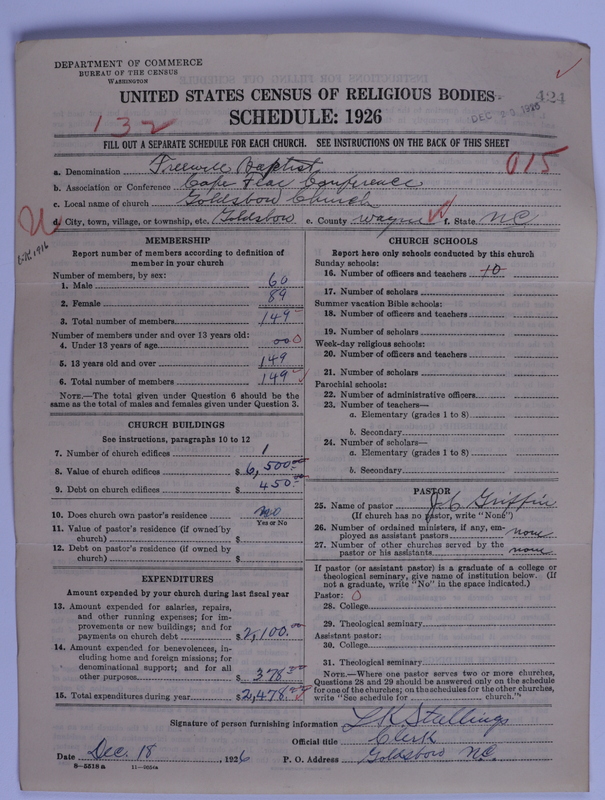 DEPARTMENT OF COMMERCE
BUREAU OF THE CENSUS
WASHINGTON
UNITED STATES CENSUS OF RELIGIOUS BODIES
424
DEC 23 1926
SCHEDULE: 1926
132
FILL OUT A SEPARATE SCHEDULE FOR EACH CHURCH. SEE INSTRUCTIONS ON THE BACK OF THIS SHEET
015
a. Denomination Freewill Baptist
b. Association or Conference Cape Fear Conference
c. Local name of church Goldsboro Church
d. City, town, village, or township, etc. Goldsboro e. County Wayne f. State NC
MEMBERSHIP
Report number of members according to definition of
member in your church
Number of members, by sex:
1. Male 60
2. Female 89
3. Total number of members 149
Number of members under and over 13 years old:
4. Under 13 years of age 000
5. 13 years old and over 149
6. Total number of members 149
NOTE.—The total given under Question 6 should be the
same as the total of males and females given under Question 3.
CHURCH BUILDINGS
See instructions, paragraphs 10 to 12
7. Number of church edifices 1
8. Value of church edifices $ 6,500.00
9. Debt on church edifices $ 450.00
10. Does church own pastor's residence no
Yes or No
11. Value of pastor's residence (if owned by
church) $
12. Debt on pastor's residence (if owned by
church) $
EXPENDITURES
Amount expended by your church during last fiscal year
13. Amount expended for salaries, repairs,
and other running expenses; for im-
provements or new buildings; and for
payments on church debt $ 2,100.00
14. Amount expended for benevolences, in-
cluding home and foreign missions; for
denominational support; and for all
other purposes $ 378.00
15. Total expenditures during year $ 2,478.00
CHURCH SCHOOLS
Report here only schools conducted by this church
Sunday schools:
16. Number of officers and teachers 10
17. Number of scholars
Summer vacation Bible schools:
18. Number of officers and teachers
19. Number of scholars
Week-day religious schools:
20. Number of officers and teachers
21. Number of scholars
Parochial schools:
22. Number of administrative officers
23. Number of teachers—
a. Elementary (grades 1 to 8)
b. Secondary
24. Number of scholars—
a. Elementary (grades 1 to 8)
b. Secondary
PASTOR
25. Name of pastor J. C. Griffin
(If church has no pastor, write "None")
26. Number of ordained ministers, if any, em-
ployed as assistant pastors none
27. Number of other churches served by the
pastor or his assistants none
If pastor (or assistant pastor) is a graduate of a college or
theological seminary, give name of institution below. (If
not a graduate, write "No" in the space indicated.)
Pastor: 0
28. College
29. Theological seminary
Assistant pastor:
30. College
31. Theological seminary
NOTE.—Where one pastor serves two or more churches,
Questions 28 and 29 should be answered only on the schedule
for one of the churches; on the schedules for the other churches,
write "See schedule for church."
Signature of person furnishing information L K Stallings
Official title Clerk
Date Dec. 18, 1926 P. O. Address Goldsboro N.C.
8—5518 a 11—9054a